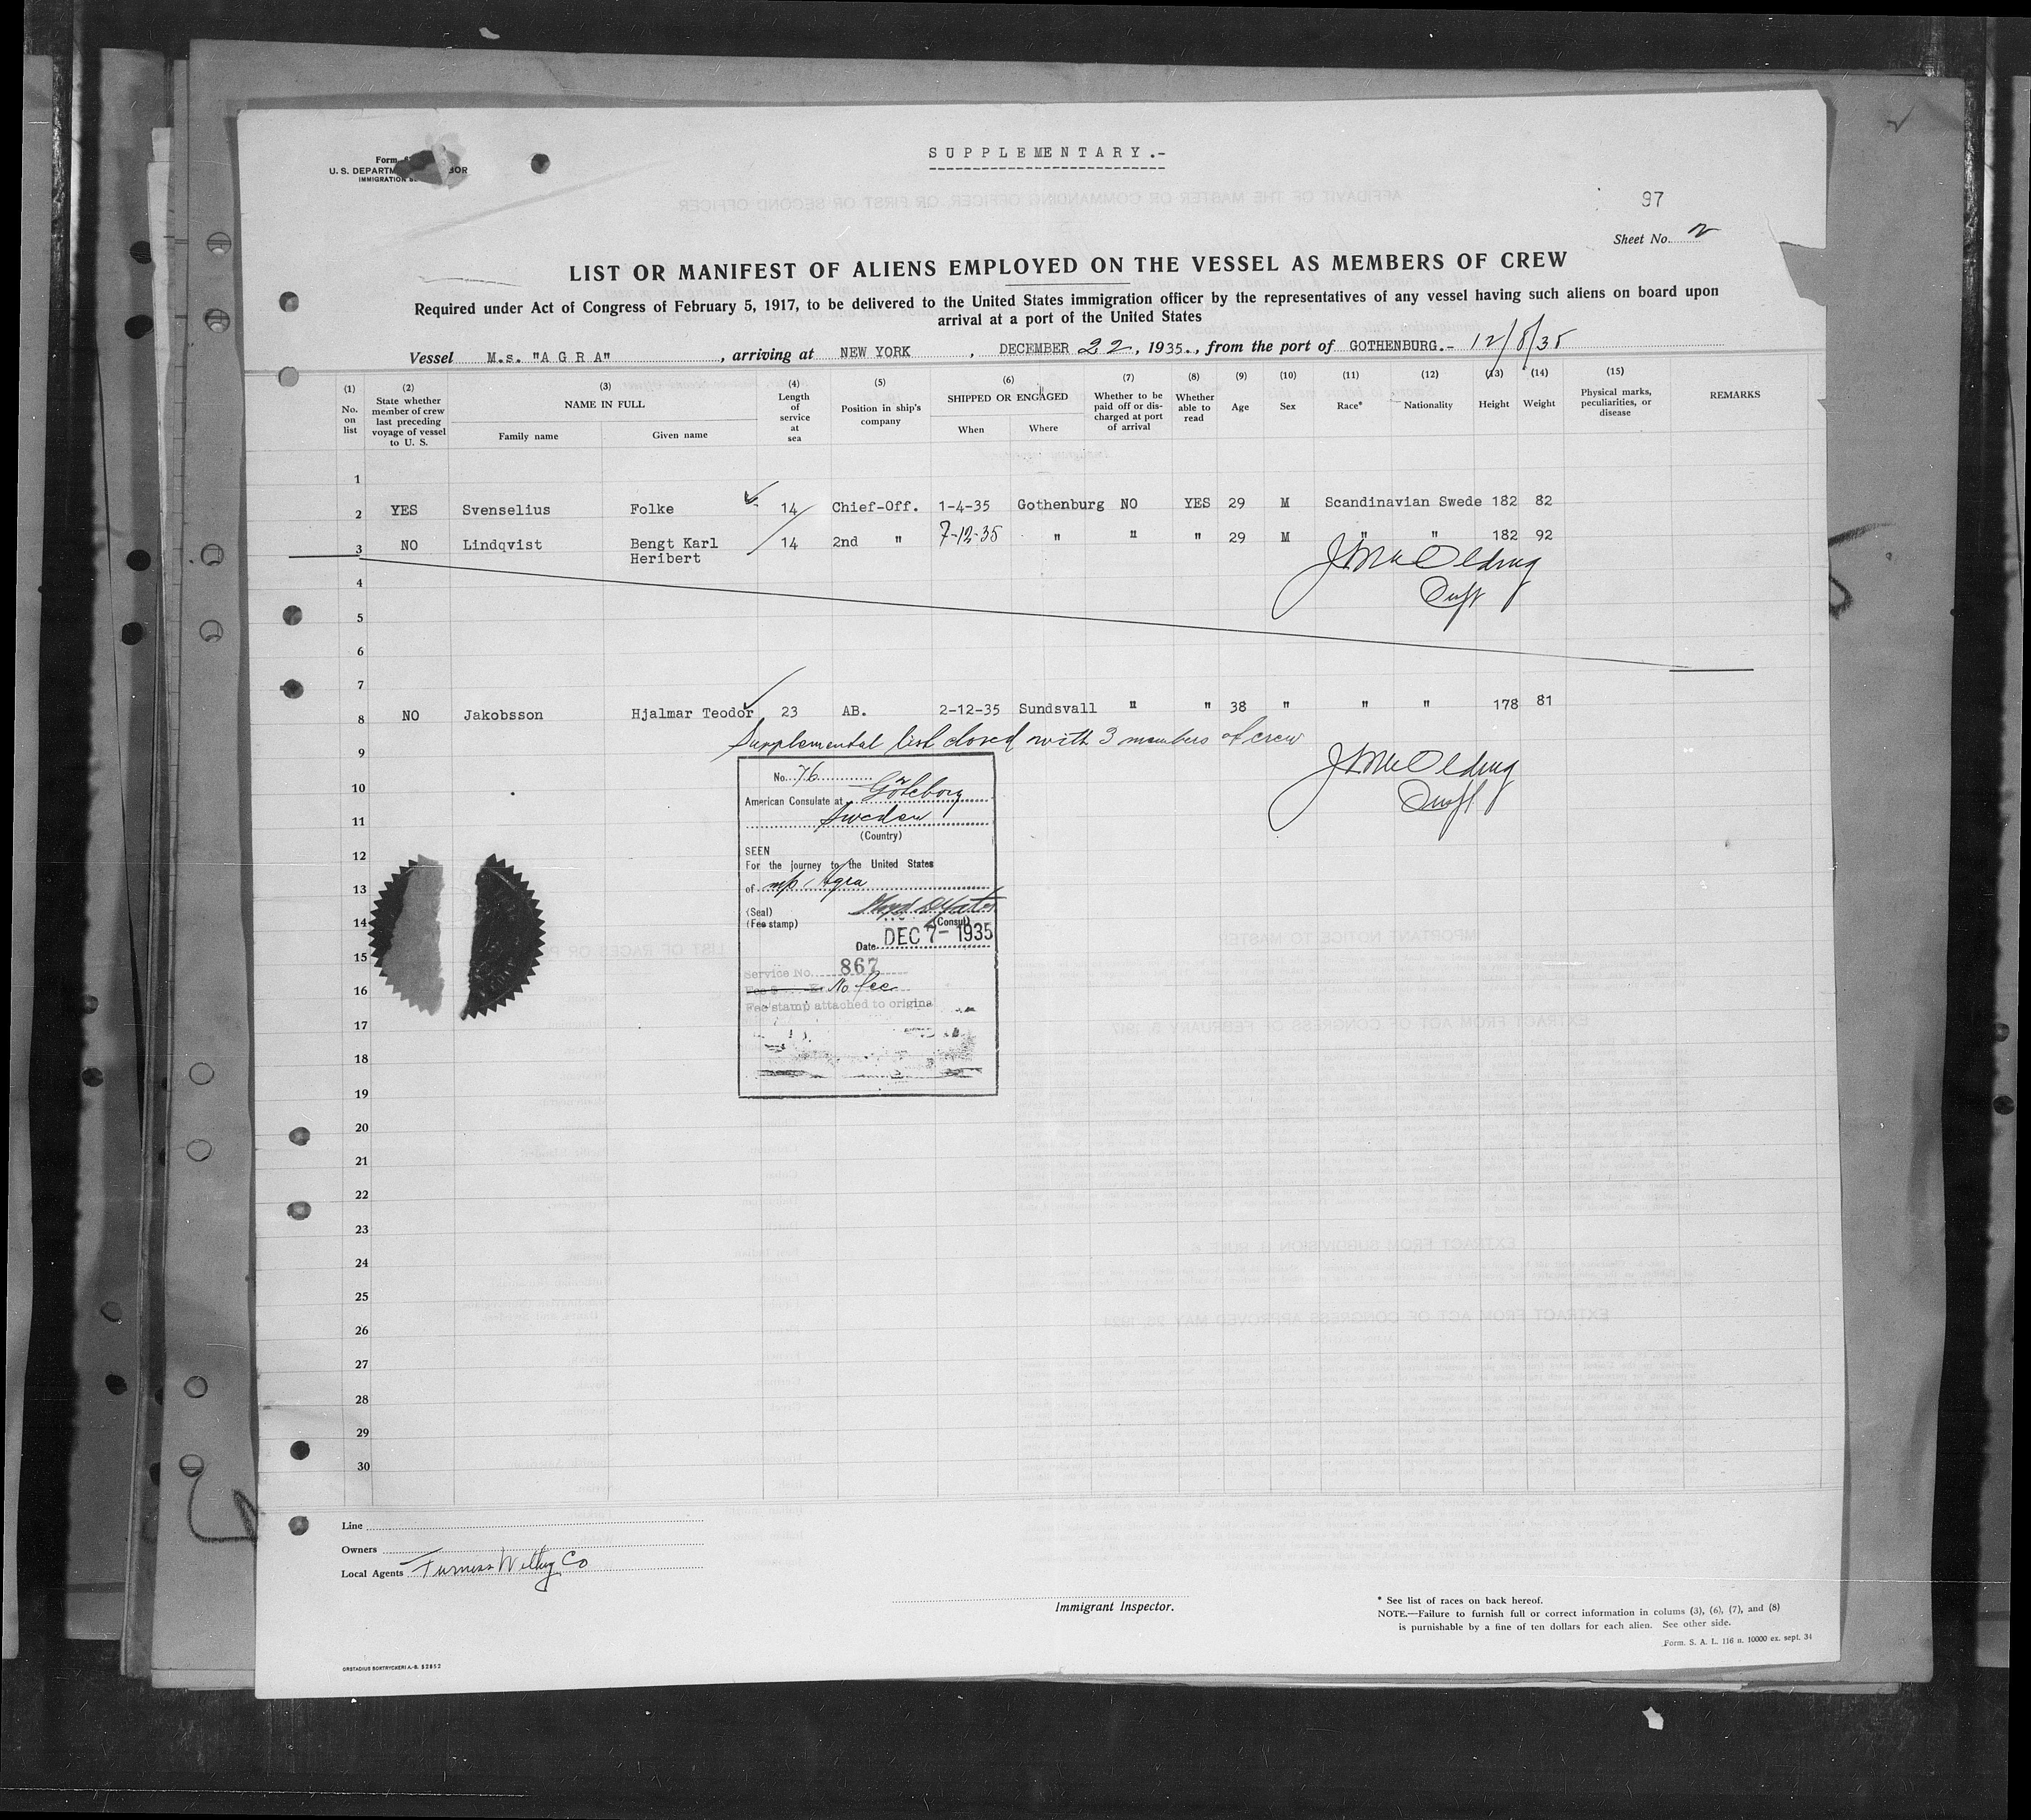 SUPPLEMENTARY.-
Form
U. S. DEPARTM BOR
IMMIGRATION
97
Sheet No. 2
LIST OR MANIFEST OF ALIENS EMPLOYED ON THE VESSEL AS MEMBERS OF CREW
Required under Act of Congress of February 5, 1917, to be delivered to the United States immigration officer by the representatives of any vessel having such aliens on board upon
arrival at a port of the United States
Vessel M.s. "A G R A" , arriving at NEW YORK , DECEMBER 22, 1935., from the port of GOTHENBURG.- 12/8/35
(1) No. on list (2) State whether member of crew last preceding voyage of vessel to U. S. (3) NAME IN FULL Family name Given name (4) Length of service at sea (5) Position in ship's company (6) SHIPPED OR ENGAGED When Where (7) Whether to be paid off or discharged at port of arrival (8) Whether able to read (9) Age (10) Sex (11) Race* (12) Nationality (13) Height (14) Weight (15) Physical marks, peculiarities, or disease REMARKS
1
2 YES Svenselius Folke 14 Chief-Off. 1-4-35 Gothenburg NO YES 29 M Scandinavian Swede 182 82
3 NO Lindqvist Bengt Karl 14 2nd " 7-12-35 " " " 29 M " " 182 92
Heribert
4
5
6
7
8 NO Jakobsson Hjalmar Teodor 23 AB. 2-12-35 Sundsvall " " 38 " " " 178 81
Supplemental list closed with 3 members of crew
9
10
11
12
13
14
15
16
17
18
19
20
21
22
23
24
25
26
27
28
29
30
No. 76
American Consulate at Göteborg
Sweden
(Country)
SEEN
For the journey to the United States
of m/s Agra
(Seal)
(Fee stamp) (Consul)
Date DEC 7- 1935
Service No. 867
No fee
Fee stamp attached to original
Line
Owners
Local Agents Furness Withy Co
Immigrant Inspector.
* See list of races on back hereof.
NOTE.—Failure to furnish full or correct information in colums (3), (6), (7), and (8)
is purnishable by a fine of ten dollars for each alien. See other side.
Form. S. A. L. 116 n. 10000 ex. sept. 34
ORSTADIUS BOKTRYCKERI A.-B. 52852